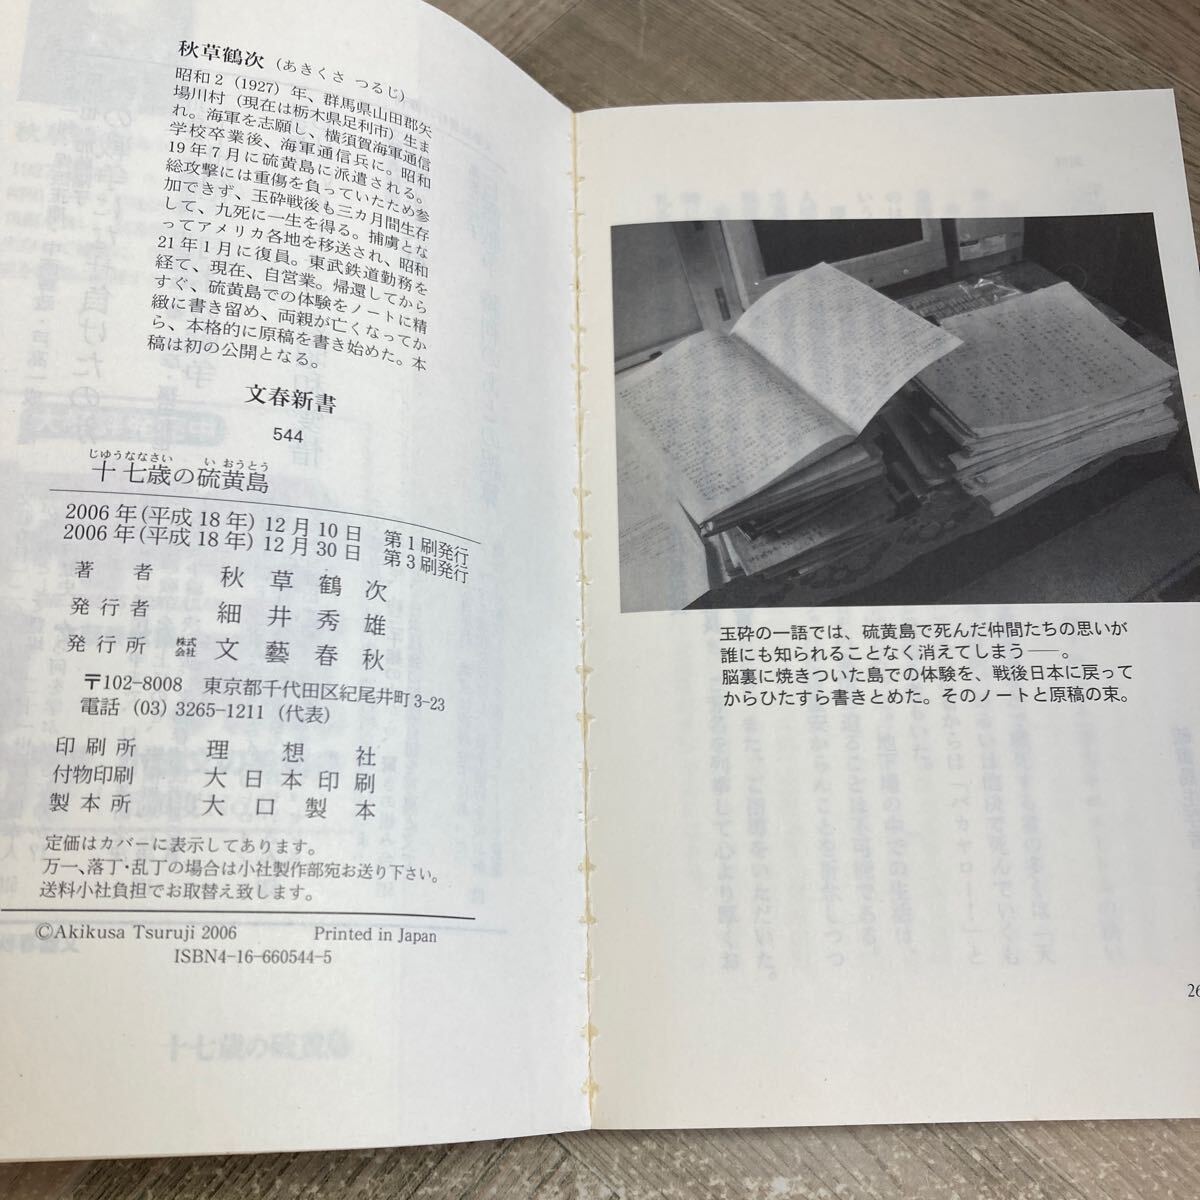 秋草鶴次（あきくさ つるじ）
昭和2（1927）年、群馬県山田郡矢
場川村（現在は栃木県足利市）生ま
れ。海軍を志願し、横須賀海軍通信
学校卒業後、海軍通信兵に。昭和
19年7月に硫黄島に派遣される。
総攻撃には重傷を負っていたため参
加できず、玉砕戦後も三カ月間生存
して、九死に一生を得る。捕虜とな
ってアメリカ各地を移送され、昭和
21年1月に復員。東武鉄道勤務を
経て、現在、自営業。帰還してから
すぐ、硫黄島での体験をノートに精
緻に書き留め、両親が亡くなってか
ら、本格的に原稿を書き始めた。本
稿は初の公開となる。
文春新書
544
じゆうななさい い おうとう
十七歳の硫黄島
2006年（平成18年）12月10日 第1刷発行
2006年（平成18年）12月30日 第3刷発行
著者 秋草鶴次
発行者 細井秀雄
発行所 株式会社 文藝春秋
〒102-8008 東京都千代田区紀尾井町3-23
電話（03）3265-1211（代表）
印刷所 理想社
付物印刷 大日本印刷
製本所 大口製本
定価はカバーに表示してあります。
万一、落丁・乱丁の場合は小社製作部宛お送り下さい。
送料小社負担でお取替え致します。
©Akikusa Tsuruji 2006 Printed in Japan
ISBN4-16-660544-5
玉砕の一語では、硫黄島で死んだ仲間たちの思いが
誰にも知られることなく消えてしまう――。
脳裏に焼きついた島での体験を、戦後日本に戻って
からひたすら書きとめた。そのノートと原稿の束。